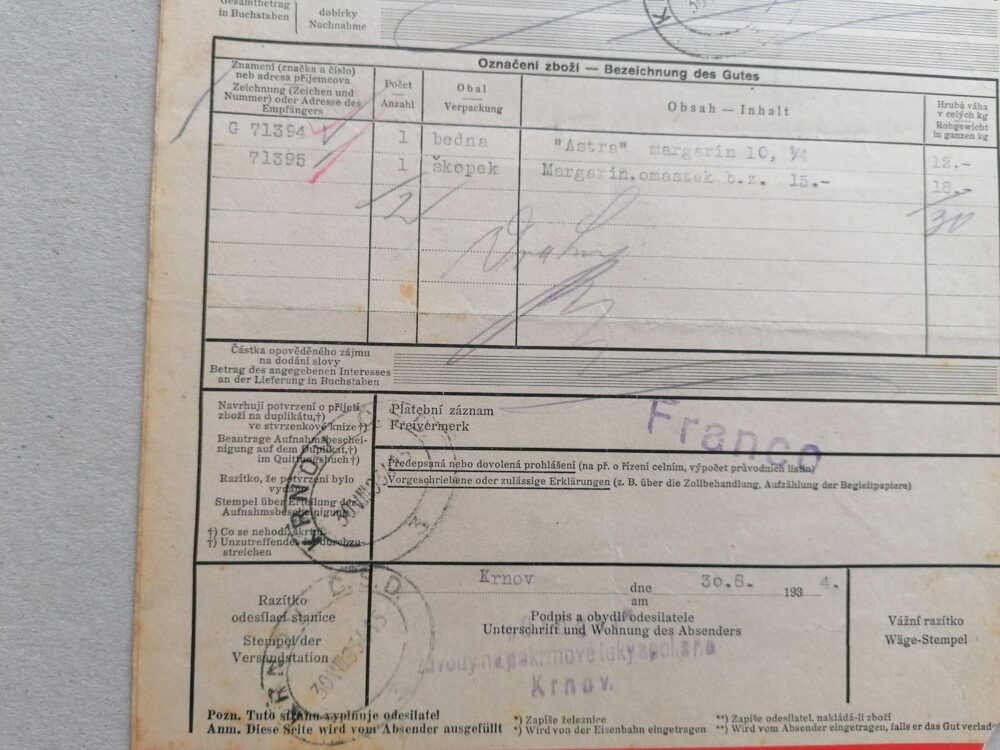 Gesamtbetrag
in Buchstaben
dobírky
Nachnahme
Označení zboží — Bezeichnung des Gutes
Znamení (značka a číslo)
neb adresa příjemcova
Zeichnung (Zeichen und
Nummer) oder Adresse des
Empfängers
Počet
Anzahl
Obal
Verpackung
Obsah — Inhalt
Hrubá váha
v celých kg
Rohgewicht
in ganzen kg
G 71394 1 bedna "Astra" margarin 10, ¼ 12.-
71395 1 škopek Margarin.omastek b.z. 15.- 18.-
/2/ 30
Částka opověděného zájmu
na dodání slovy
Betrag des angegebenen Interesses
an der Lieferung in Buchstaben
Navrhuji potvrzení o přijetí
zboží na duplikátu,†)
ve stvrzenkové knize†)
Beantrage Aufnahmsbeschei-
nigung auf dem Duplikat,†)
im Quittungsbuch†)
Razítko, že potvrzení bylo
vydáno
Stempel über Erteilung der
Aufnahmsbescheinigung
†) Co se nehodí, škrtni
†) Unzutreffendes ist durchzu-
streichen
Platební záznam
Freivermerk
Franco
Předepsaná nebo dovolená prohlášení (na př. o řízení celním, výpočet průvodních listin)
Vorgeschriebene oder zulässige Erklärungen (z. B. über die Zollbehandlung, Aufzählung der Begleitpapiere)
KRNOV
Krnov dne 30.6. 1934.
am
Razítko
odesílací stanice
Stempel der
Versandstation
Č.S.D.
KRNOV
Podpis a obydlí odesilatele
Unterschrift und Wohnung des Absenders
závody na pokrmové tuky spol. s r. o
Krnov.
Vážní razítko
Wäge-Stempel
Pozn. Tuto stranu vyplňuje odesilatel
Anm. Diese Seite wird vom Absender ausgefüllt
*) Zapíše železnice
*) Wird von der Eisenbahn eingetragen
**) Zapíše odesilatel, nakládá-li zboží
**) Wird vom Absender eingetragen, falls er das Gut